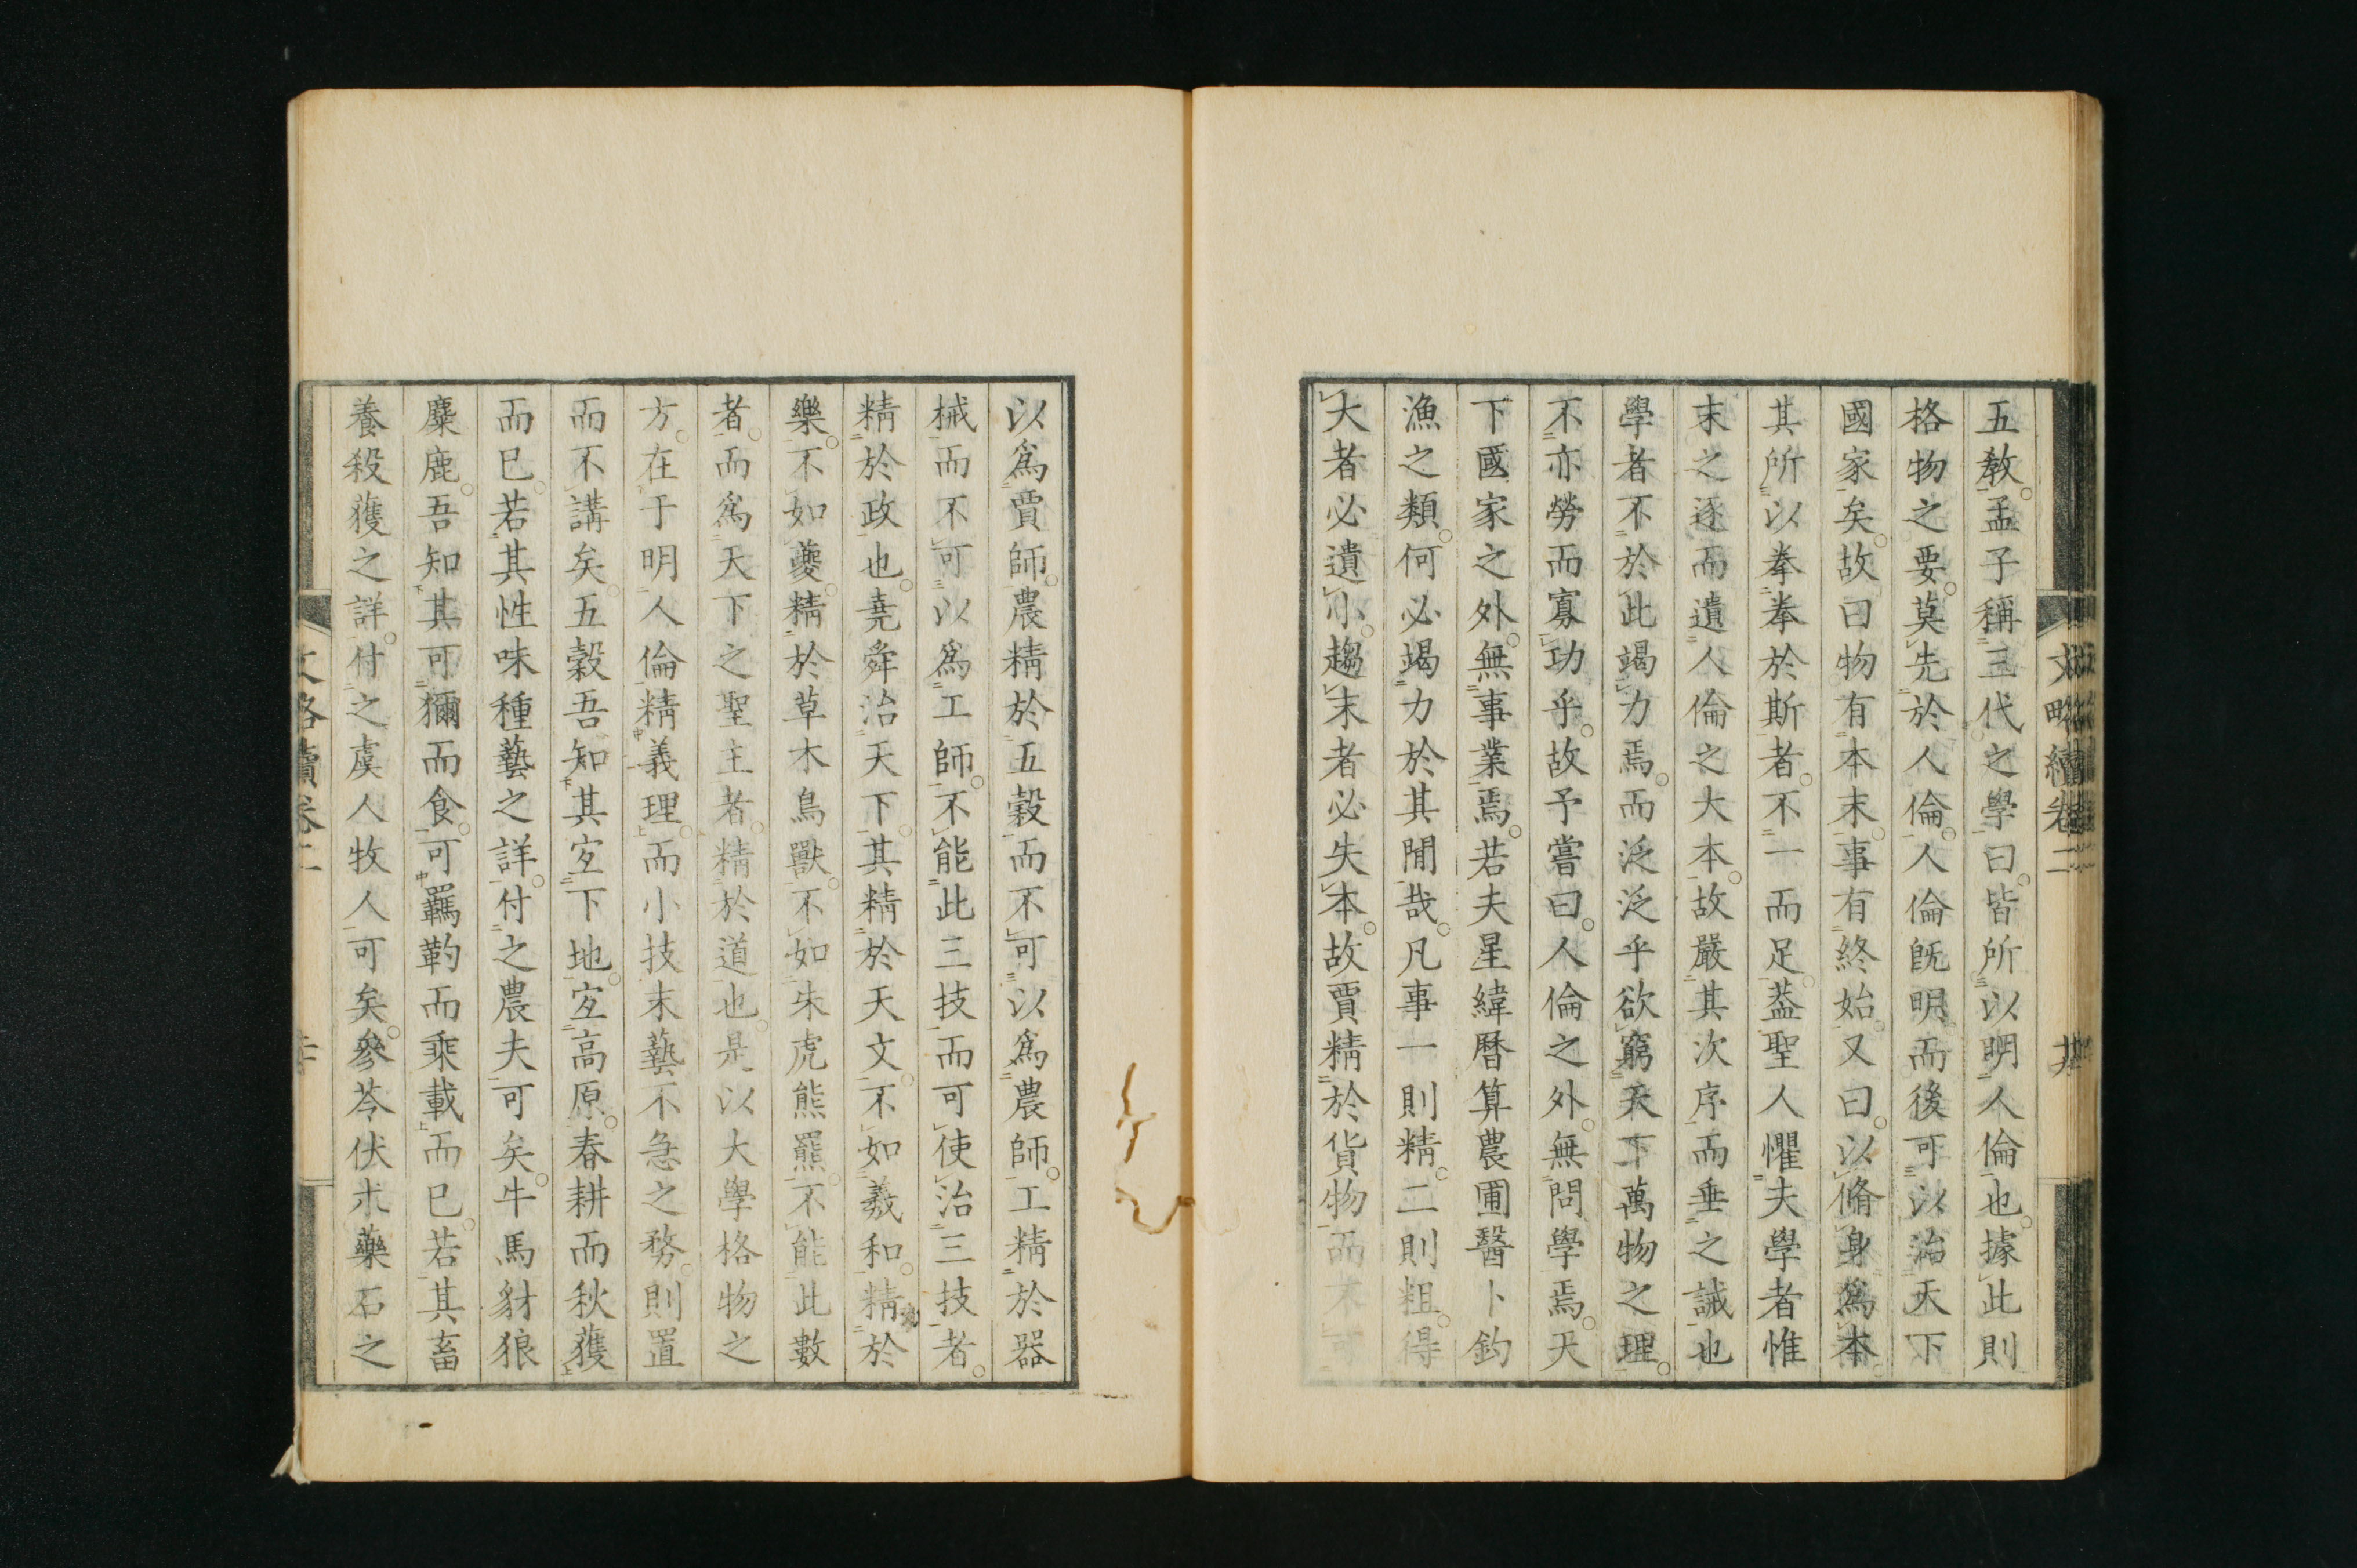 五教孟子稱三代之學曰皆所以明人倫也據此則
格物之要莫先於人倫人倫既明而後可以治天下
國家矣故曰物有本末事有終始又曰以脩身爲本
其所以拳拳於斯者不一而足葢聖人懼夫學者惟
末之逐而遺人倫之大本故嚴其次序而垂之誡也
學者不於此竭力焉而泛泛乎欲窮天下萬物之理
不亦勞而寡功乎故予嘗曰人倫之外無問學焉天
下國家之外無事業焉若夫星緯曆算農圃醫卜釣
漁之類何必竭力於其閒哉凡事一則精二則粗得
大者必遺小趨末者必失本故賈精於貨物而不可
以爲賈師農精於五穀而不可以爲農師工精於器
械而不可以爲工師不能此三技而可使治三技者
精於政也堯舜治天下其精於天文不如羲和精於
樂不如夔精於草木鳥獸不如朱虎熊羆不能此數
者而爲天下之聖主者精於道也是以大學格物之
方在于明人倫精義理而小技末藝不急之務則置
而不講矣五穀吾知其宐下地宐高原春耕而秋穫
而已若其性味種藝之詳付之農夫可矣牛馬豺狼
麋鹿吾知其可獮而食可羈靮而乘載而已若其畜
養殺獲之詳付之虞人牧人可矣參苓伏朮藥石之
文略續卷二